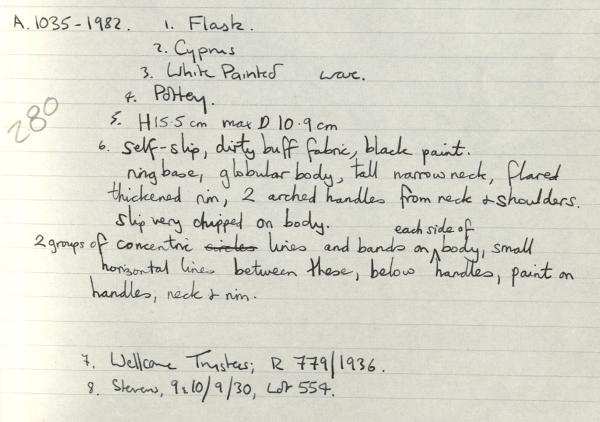 A.1035-1982. 1. Flask.
2. Cyprus
3. White Painted ware.
280
4. Pottery.
5. H 15.5 cm max D 10.9 cm
6. self-slip, dirty buff fabric, black paint.
ring base, globular body, tall narrow neck, flared
thickened rim, 2 arched handles from neck & shoulders.
slip very chipped on body.
each side of
2 groups of concentric circles lines and bands on body, small
horizontal lines between these, below handles, paint on
handles, neck & rim.
7. Wellcome Trustees; R 779/1936.
8. Stevens, 9&10/9/30, Lot 554.